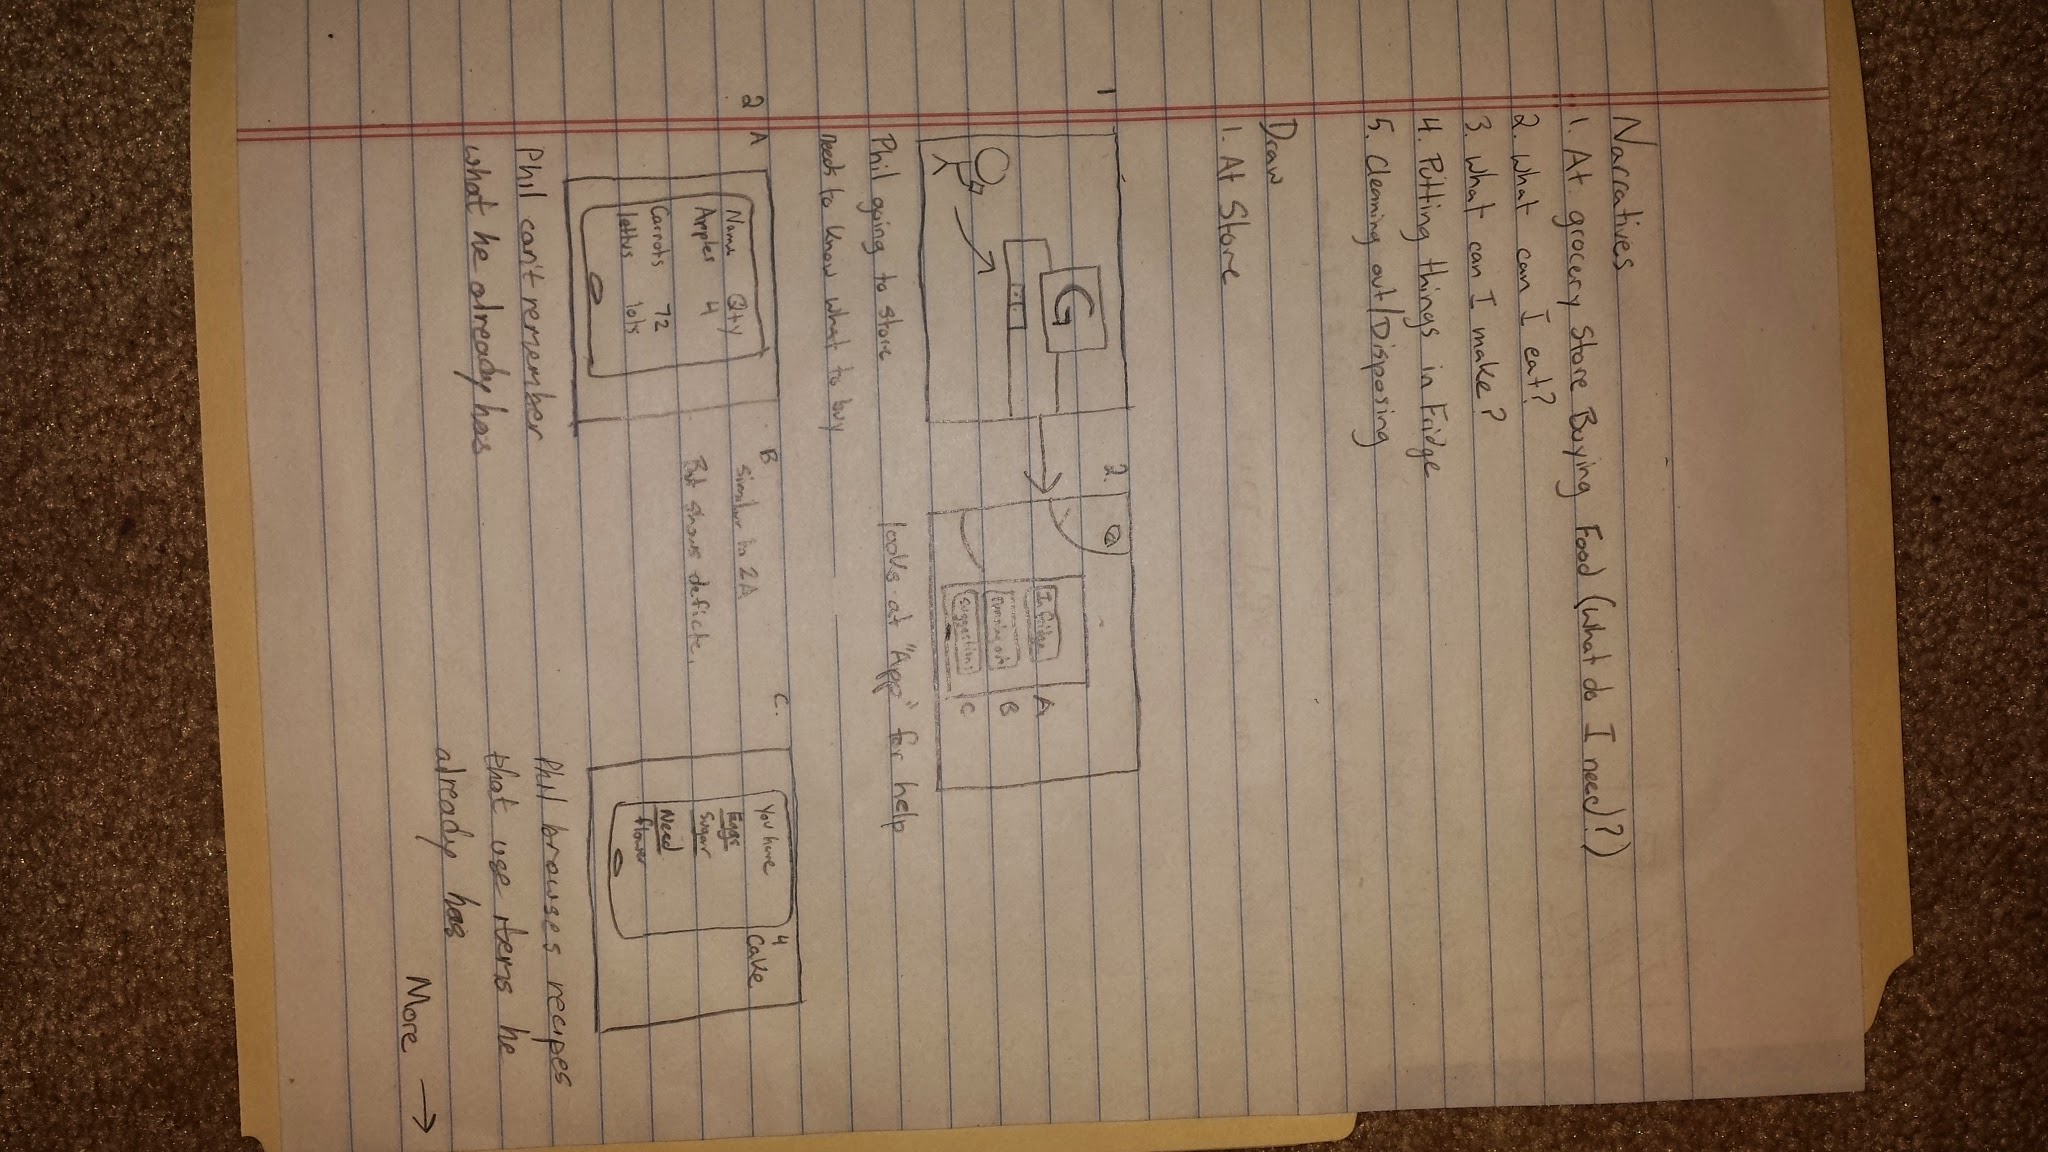 Narratives
1. At grocery Store Buying Food (What do I need?)
2. What can I eat?
3. What can I make?
4. Putting things in Fridge
5. Cleaning out/Disposing
Draw
1. At Store
1
G
2.
In fridge
running out
suggestions
A
B
C
Phil going to store
needs to know what to buy
looks at "App" for help
2 A
Name Qty
Apples 4
Carrots 72
lots
Phil can't remember
what he already has
B
similar to 2A
But shows deficit.
C.
You have
Eggs
Sugar
Need
flower
4
Cake
Phil browses recipes
that use items he
already has
More →